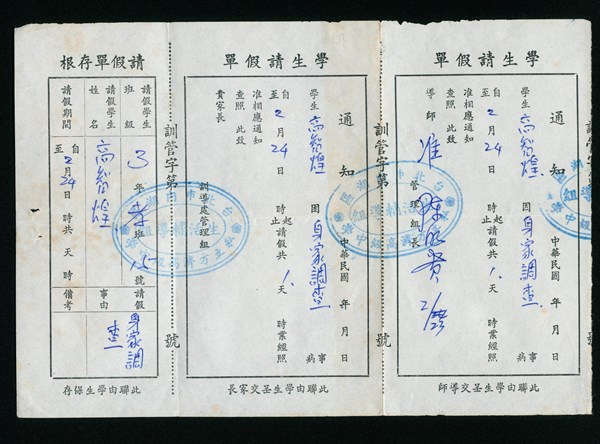 學生請假單
通知
學生高智煌因身家調查
病事
自
至2月24日 時起止請假共1天 時業經照
准相應通知
查照 此致
導師
准
管理組長
中華民國 年 月 日
此聯由學生呈交導師
訓管字第 號
學生請假單
通知
學生高智煌因身家調查
病事
自
至2月24日 時起止請假共1天 時業經照
准相應通知
查照 此致
貴家長
訓導處管理組
中華民國 年 月 日
此聯由學生呈交家長
訓管字第 號
請假單存根
請假學生班級 3年 班15號
請假學生姓名 高智煌
請假期間 自
至2月24日 時共 天 時
請假事由 身家調查
備考
此聯由學生保存